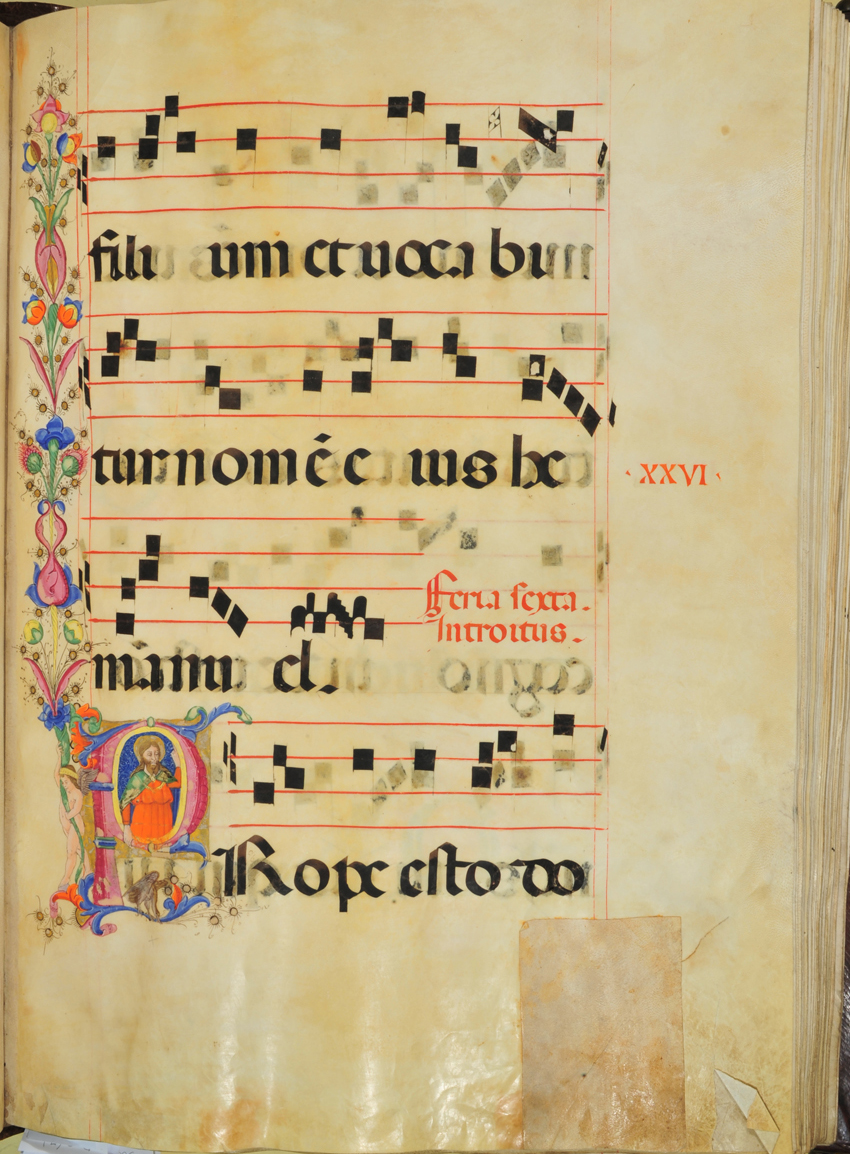 filium et uoca bi
tur nom ē e ius he
manu el.
XXVI
Feria sexta.
Introitus.
PRope esto do